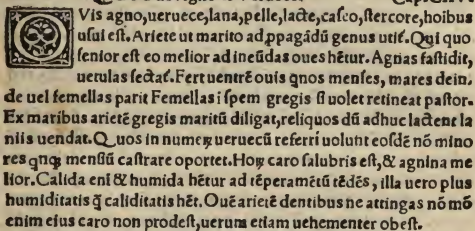 OVis agno, ueruece, lana, pelle, lacte, caseo, stercore, hoibus
usui est. Ariete ut marito ad ppagādū genus utit̄. Qui quo
senior est eo melior ad ineūdas oues hētur. Agnas fastidit,
uetulas sectat̄. Fert uentrē ouis qnos menses, mares dein,
de uel femellas parit Femellas i spem gregis si uolet retineat pastor.
Ex maribus arietē gregis maritū diligat, reliquos dū adhuc lactent la
niis uendat. Quos in numeꝝ ueruecū referri uolunt eosdē nō mino
res qnqꝫ mensiū castrare oportet. Hoꝝ caro salubris est, & agnina me
lior. Calida eni & humida hētur ad tēperamētū tēdēs, illa uero plus
humiditatis q̄ caliditatis hēt. Ouē arietē dentibus ne attingas nō mō
enim eius caro non prodest, uerum etiam uehementer obest.